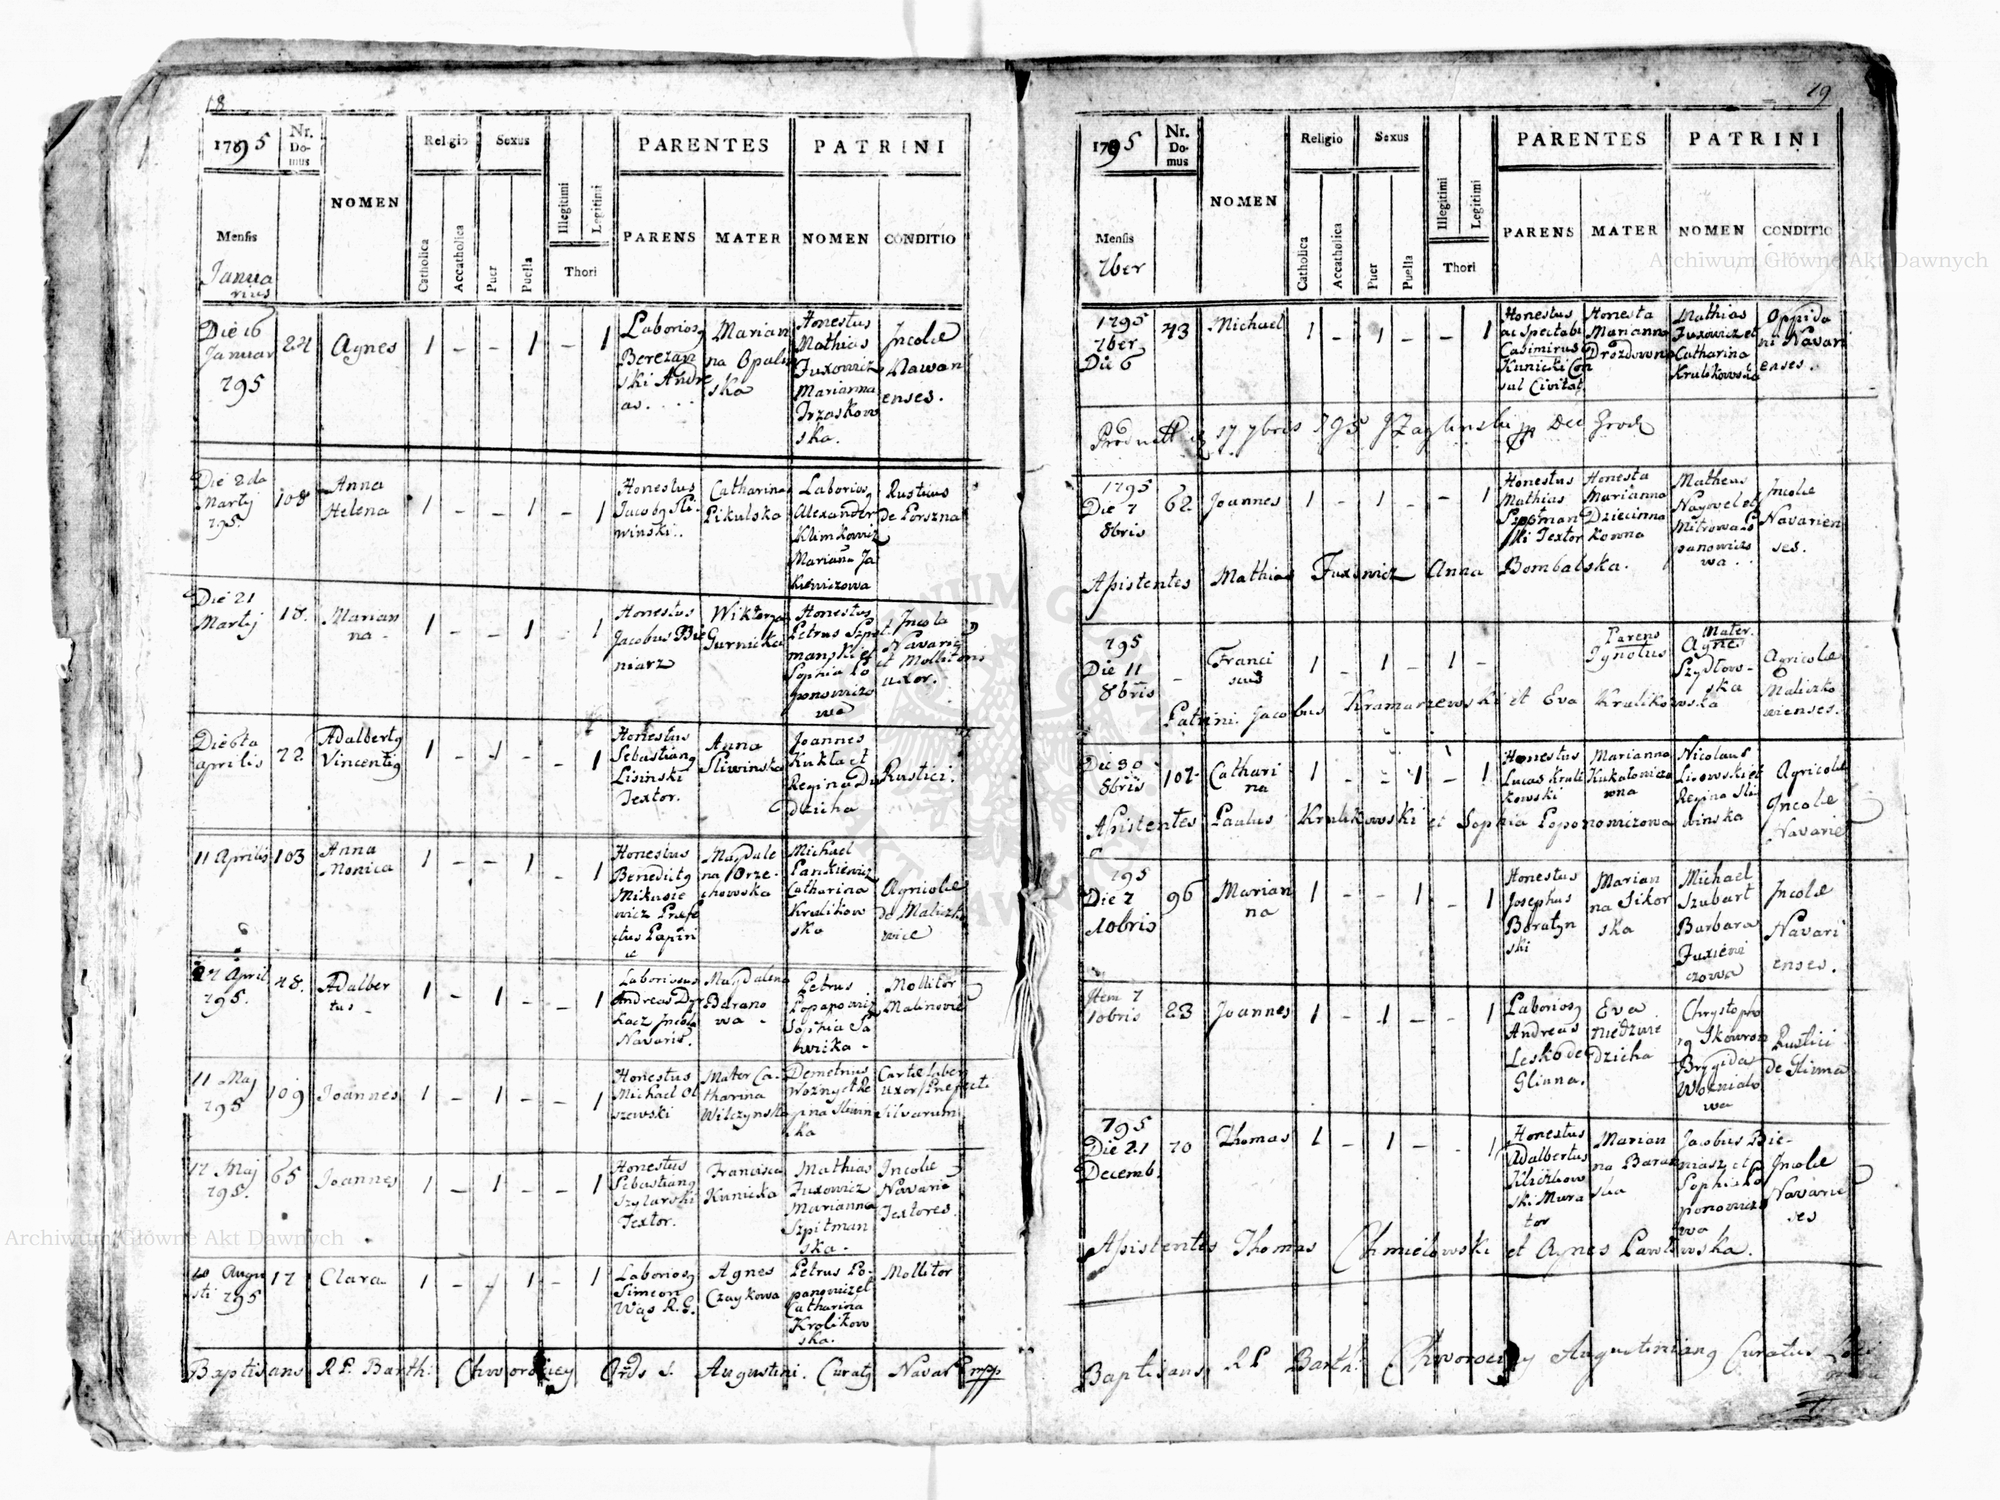 18
1795
Nr. Do- mus
NOMEN
Religio
Sexus
PARENTES
PATRINI
Mensis
Janua
rius
Catholica
Accatholica
Puer
Puella
Illegitimi
Legitimi
Thori
PARENS
MATER
NOMEN
CONDITIO
Die 16
Januar
795
24
Agnes
1 - - 1 - 1
Laborios9
Berezan
ski Andre
as.
Marian
na Opalin
ska
Honestus
Mathias
Fuxowicz
Marianna
Trzaskow
ska.
Incolae
Nawari
enses.
Die 2da
Martij
795
108
Anna
Helena
1 - - 1 - 1
Honestus
Jacob9 Sli-
winski..
Catharina
Pikulska
Laborios9
Alexander
Klimkowicz
Mariana Ja
kiewiczowa
Rusticus
de Porszna
Die 21
Martij
18.
Marian
na -
1 - - 1 - 1
Honestus
Jacobus Bie
niarz
Wiktorya
Gurnicka
Honestus
Petrus Szpit
manski et
Sophia Po
ponowiczo
wa
Incola
Navarie
et Mollitoris
uxor.
Die 6ta
aprilis
72
Adalbert9
Vincenti9
1 - 1 - - 1
Honestus
Sebastian9
Lisinski
Textor.
Anna
Sliwinska
Joannes
Kukla et
Regina Du
Dzicha
Rustici.
11 Aprilis
103
Anna
Monica
1 - - 1 - 1
Honestus
Benedict9
Mikusie
wicz Praefe
ctus Papiri
Magdale
na Orze-
chowska
Michael
Pankiewicz
Catharina
Krulikow
ska
Agricolae
de Maliczko
wice
27 April
795.
48.
Adalber
tus -
1 - 1 - - 1
Laboriosus
Andreas
kacz Incola
Navaris.
Magdalena
Barano
wa -
Petrus
Popanowicz
Sophia Sa
wicka -
Mollitor
Malinovie
11 Maj
795
109
Joannes
1 - 1 - - 1
Honestus
Michael Ol
szewski
Mater Ca-
tharina
Wilczynska
Demetrius
Wozny et Re
gina Sliwin
ska
uxor Praefecti
Silvarum
12 Maj
795.
65
Joannes
1 - 1 - - 1
Honestus
Sebastian9
Szylarski
Textor.
Francisca
Kunicka
Mathias
Fuxowicz
Marianna
Szpitman
ska.
Incolae
Navarie
Textores.
Augu
sti 795
17
Clara
1 - - 1 - 1
Laborios9
Simeon
Wąs R.G.
Agnes
Czaykowa
Petrus Po-
panowicz et
Catharina
Krolikow
ska.
Mollitor
Baptisans R.P. Barth: Chworosciey Ords S. Augustini. Curat9 Navar mpp.
19
1795
Nr. Do- mus
NOMEN
Religio
Sexus
PARENTES
PATRINI
Mensis
7ber
Catholica
Accatholica
Puer
Puella
Illegitimi
Legitimi
Thori
PARENS
MATER
NOMEN
CONDITIO
1795
7ber
Die 6
43
Michael
1 - 1 - - 1
Honestus
ac Spectabi
Casimirus
Kunicki Con
sul Civitat.
Honesta
Marianna
Drozdowna
Mathias
Fuxowicz et
Catharina
Krulikowska
Oppida
ni Navari
enses.
17 7bris 795
1795
Die 7
8bris
62
Joannes
1 - 1 - 1
Honestus
Mathias
Szpitman
ski Textor
Honesta
Marianna
Dziecinna
kowna
Matheus
Nagowel et
Mitrowa Po
panowiczo
wa.
Incolae
Navarien
ses.
Assistentes Mathias Fuxowicz Anna Bombalska.
795
Die 11
8bris
-
Franci
scus
1 - 1 - 1 -
Parens
Ignotus
Mater.
Agnes
Szydlow-
ska
Agricolae
Maliczko
wienses.
Patrini. Jacobus Kramarzewski et Eva Krulikowska
Die 30
8bris
107
Cathari
na
1 - - 1 - 1
Honestus
Lucas Kruli
kowski
Marianna
Kukalowiczo
wna
Nicolaus
Lisowski et
Regina Sli
winska
Agricolae
Incolae
Navarie
Assistentes Paulus Krulikowski et Sophia Poponowiczowa
795
Die 7
10bris
96
Marian
na
1 - - 1 - 1
Honestus
Josephus
Boratyn
ski
Marian
na Sikor
ska
Michael
Szubert
Barbara
Fuxiewi
czowa
Incolae
Navari
enses.
Item 7
10bris
23
Joannes
1 - 1 - - 1
Laborios9
Andreas
Lesko de
Glinna.
Eva
Niedzwie
dzicha
Chrystopho
r9 Skowron
Brygida
Wozniako
wa
Rustici
de Glinna
795
Die 21
Decemb.
70
Thomas
1 - 1 - - 1
Honestus
Adalbertus
ski Mura
tor
Marian
na Baran
ska
Jacobus Bie-
niasz et
Sophia Po
ponowiczo
wa
Incolae
Navarie
ses
Assistentes Thomas Chmielowski et Agnes Pawlowska.
Baptisans R P Barth: Chworosciey Augustinian9 Curatus Loci
Archiwum Główne Akt Dawnych
Archiwum Główne Akt Dawnych